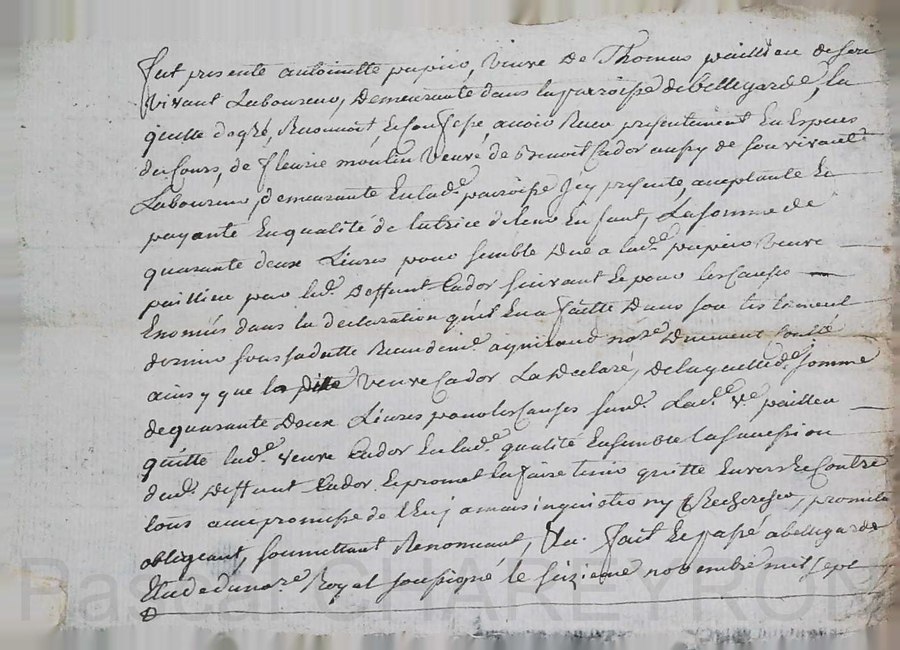 fut presente antoinette pupier, veuve de Thomas paillieu de son
vivant Laboureur, demeurante dans la parroisse de bellegarde, la
quelle de gré, Reconnoit et confesse, avoir Receu presentement En Especes
du Cours, de fleurie moulin veuve de benoit Cador aussy de son vivant
Laboureur, demeurante En lad.e parroisse Jcy presente, aceptante Et
payante En qualité de tutrice de leur Enfant, La somme de
quarante deux Livres pour semble due a lad.e pupier veuve
paillieu par led. deffunt Cador suivant Et pour les causes
Enoncés dans la declaration qu'il En a faitte dans son testament
dernier sous sa datte Receu dem.e not.re duement Conlé
ainsy que la ditte veuve Cador La declaré, de laquelle d.e somme
de quarante deux Livres pour les causes susd. Lad.e v.e paillieu
quitte lad.e veuve Cador En lad.e qualité Ensemble la succession
dud. deffunt Cador Et promet la faire tenir quitte Envers Et Contre
tous avec promesse de n'En jamais inquieter ny Rechercher, promett
obligeant, soumettant Renonceant, &a. fait Et passé a bellegarde
Etude du no.re Royal soussigné le seizieme novembre mil sept
Pascal CHAREYRON